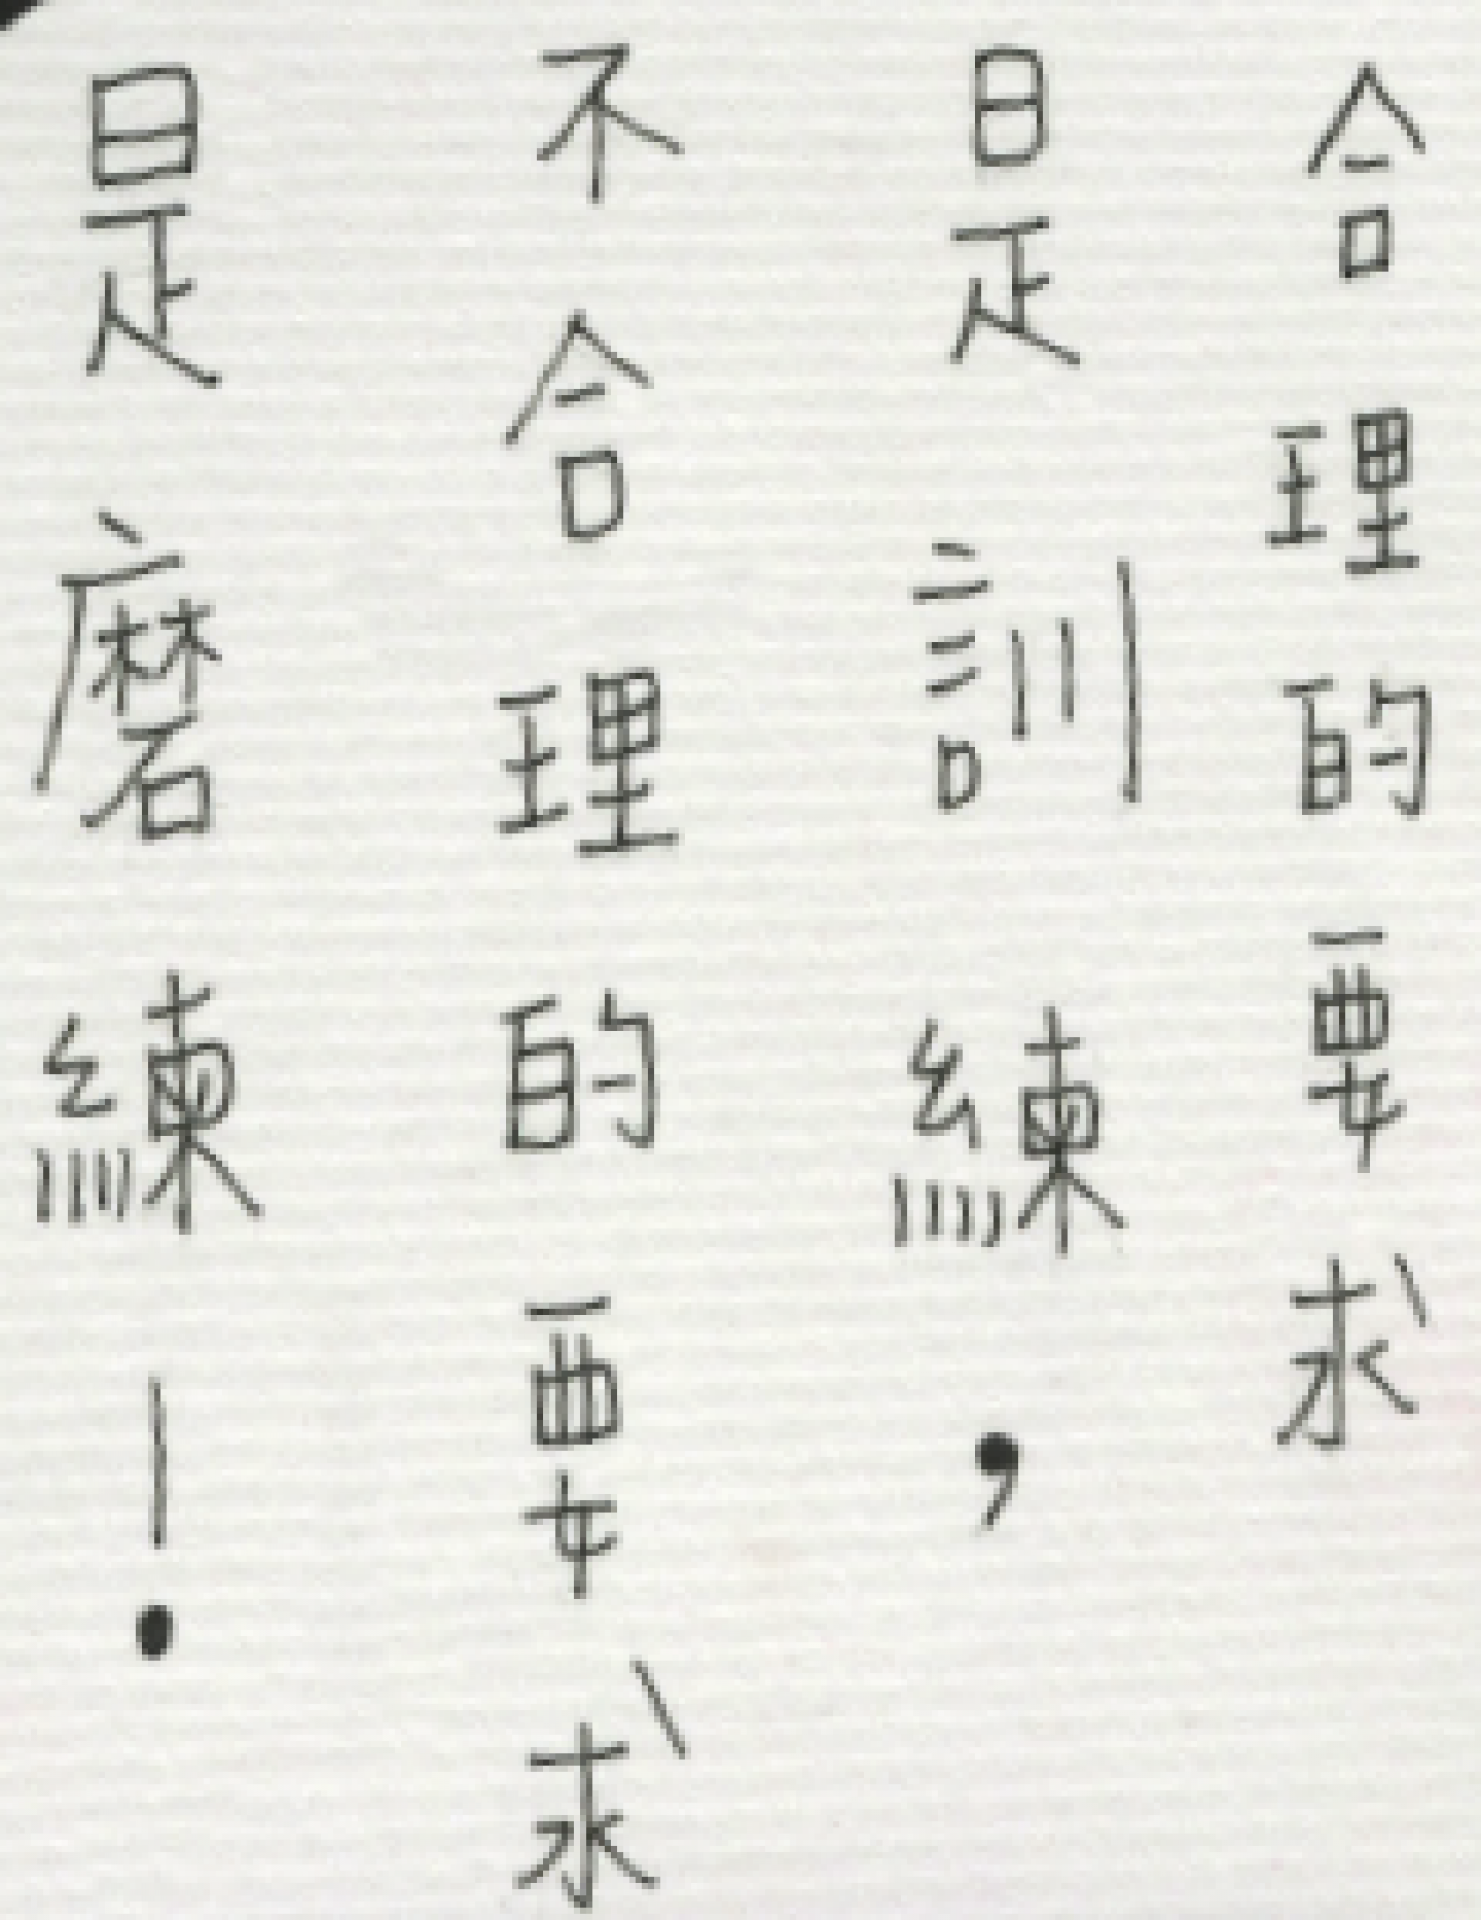 合理的要求
是訓練，
不合理的要求
是磨練！